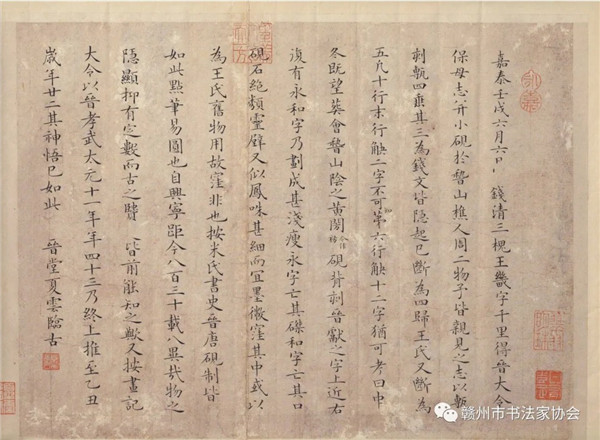 嘉泰壬戌六月六日錢清三槐王畿字千里得晉大令
保母志并小硯於嵇山樵人周二物予皆親見之志以甎
刺甎四垂其三為錢文皆隱起已斷為四歸王氏又斷為
五凡十行末行缺二字不可第六行缺十二字猶可考曰中
冬既望葬會嵇山陰之黃閍硯背刺晉獻之字上近右
復有永和字乃劃成甚淺瘦永字亡其磔和字亡其口
硯石絕類靈壁又似鳳咮甚細而宜墨微窪其中或以
為王氏舊物用故窪非也按米氏書史晉唐硯制皆
如此點筆易圓也自興寧距今八百三十載八異哉物之
隱顯抑有定數而古之賢皆前能知之歟又按畫記
大令以晉孝武太元十一年年四十三乃終上推至乙丑
歲年廿二其神悟已如此 晉堂夏雲臨古
贛州市书法家协会